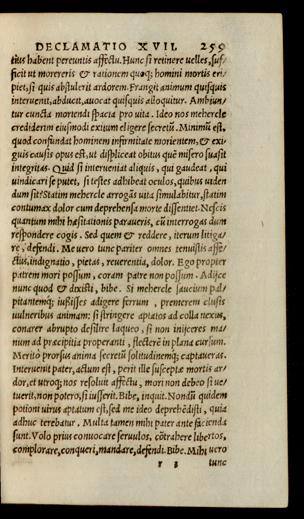 DECLAMATIO XVII. 259
tius habent pereuntis affectu. Hunc si retinere uelles, suf-
ficit ut morereris & rationem quoq; homini mortis eri-
piet, si quis abstulerit ardorem. Frangit animum quisquis
interuenit, abducit, auocat quisquis alloquitur. Ambiun-
tur cuncta mortendi spacia pro uita. Ideo nos mehercle
crediderim eiusmodi exitum eligere secretū. Minimū est,
quod confundat hominem infirmitate morientem, & exi-
guis causis opus est, ut displiceat obitus quē misero suasit
integritas. Quid si interueniat aliquis, qui gaudeat, qui
uindicari se putet, si testes adhibeat oculos, quibus uiden
dum sit? Statim mehercle arrogās uita simulabitur, statim
contumax dolor cum deprehensa morte dissentiet. Nescis
quantum mihi hæsitationis paraueris, cū interrogas dum
respondere cogis. Sed quem & reddere, iterum litiga-
re, defendi. Me uero tunc pariter omnes tenuistis affe-
ctus, indignatio, pietas, reuerentia, dolor. Ego propter
patrem mori possum, coram patre non possum. Adijce
nunc quod & dixisti, bibe. Si mehercle saucium pal-
pitantemq; iußisses adigere ferrum, premerem clusis
uulneribus animam: si stringere aptatos ad colla nexus,
conarer abrupto desilire laqueo, si non iniiceres ma-
num ad præcipitia properanti, flecterē in plana cursum.
Merito prorsus anima secretū solitudinemq; captaueras.
Interuenit pater, actum est, perit ille susceptæ mortis ar-
dor, et utrosq; nos resoluit affectu, mori non debeo si ue-
tuerit, non potero, si iusserit. Bibe, inquit. Nondū quidem
potioni uirus aptatum est, sed me ideo deprehēdisti, quia
adhuc terebatur. Multa tamen mihi pater ante facienda
sunt. Volo prius conuocare seruulos, cōtrahere libertos,
complorare, conqueri, mandare, defendi. Bibe. Mihi uero
r 2 tunc